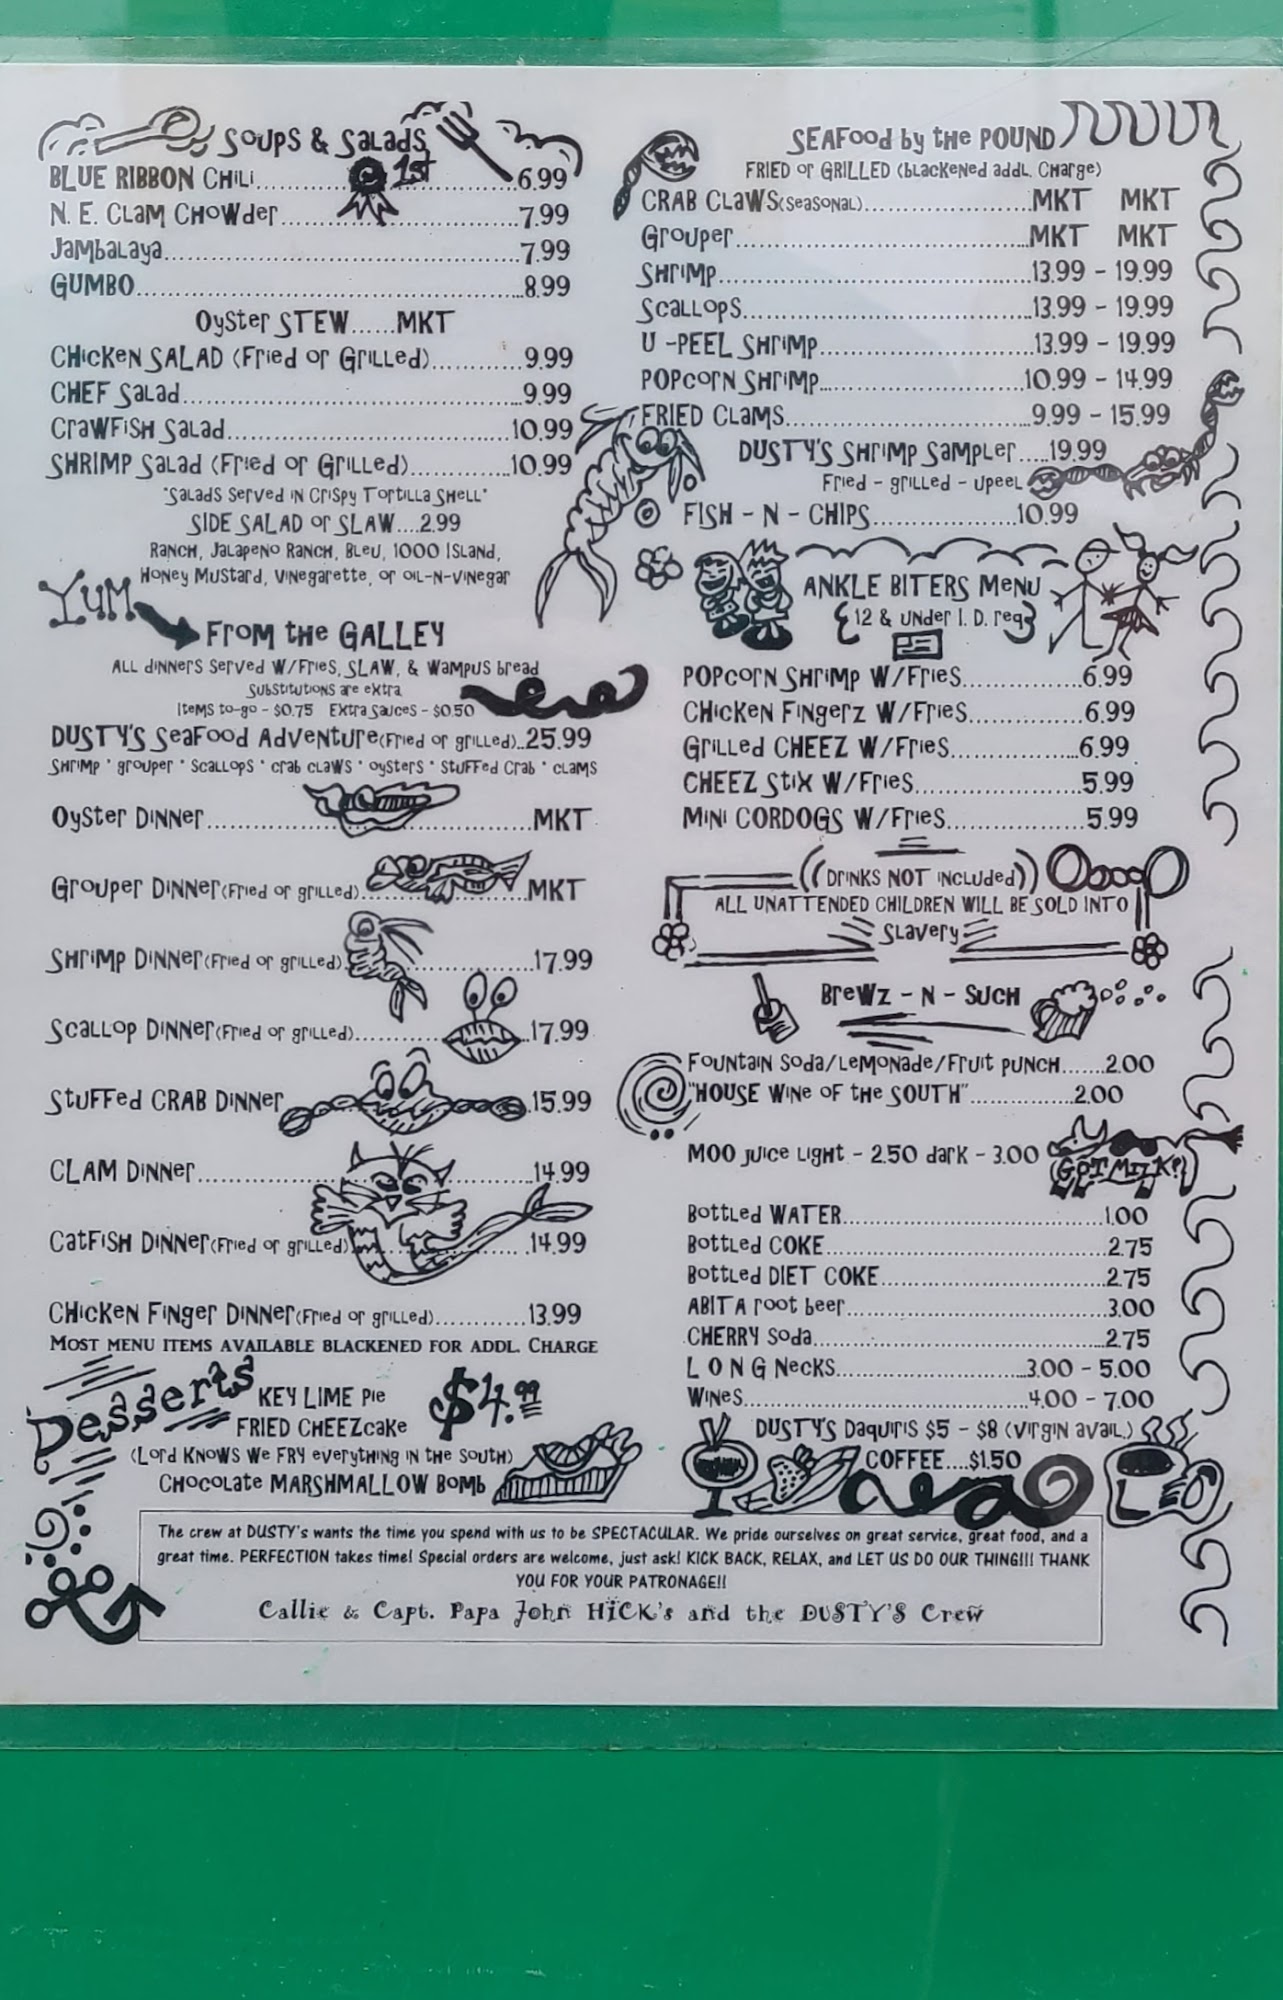 Soups & Salads
1st
BLUE RIBBON CHiLi..................6.99
N. E. Clam Chowder..................7.99
Jambalaya..................7.99
GUMBO..................8.99
Oyster STEW......MKT
CHicken SALAD (Fried or Grilled)............9.99
CHEF Salad..................9.99
CrawFish Salad..................10.99
SHRIMP Salad (Fried or Grilled)............10.99
"Salads Served in Crispy Tortilla Shell"
SIDE SALAD or SLAW....2.99
Ranch, Jalapeno Ranch, Bleu, 1000 Island,
Honey Mustard, Vinegarette, or Oil-N-Vinegar
YUM
From the GALLEY
ALL dinners Served W/Fries, SLAW, & Wampus bread
Substitutions are extra
Items to-go - $0.75 Extra Sauces - $0.50
DUSTY'S Seafood Adventure(Fried or grilled)..25.99
Shrimp * grouper * Scallops * crab claws * oysters * Stuffed Crab * clams
Oyster Dinner..................MKT
Grouper Dinner(Fried or grilled)..................MKT
Shrimp Dinner(Fried or grilled)..................17.99
Scallop Dinner(Fried or grilled)..................17.99
Stuffed CRAB Dinner..................15.99
CLAM Dinner..................14.99
Catfish Dinner(Fried or grilled)..................14.99
CHicken Finger Dinner(Fried or grilled)............13.99
Most menu items available blackened for addl. Charge
Desserts
KEY LIME Pie
$4.99
FRIED CHEEZcake
(Lord KNOWS We FRY everything in the South)
Chocolate MARSHMALLOW Bomb
SEAFood by the POUND
FRIED or GRILLED (blackened addl. Charge)
CRAB CLAWS(seasonal)..................MKT MKT
Grouper..................MKT MKT
Shrimp..................13.99 - 19.99
Scallops..................13.99 - 19.99
U -PEEL Shrimp..................13.99 - 19.99
POPcorn Shrimp..................10.99 - 14.99
FRIED Clams..................9.99 - 15.99
DUSTY'S Shrimp Sampler.....19.99
Fried - grilled - upeel
FISH - N - CHIPS..................10.99
ANKLE BITERS Menu
{12 & under I. D. req}
POPcorn Shrimp W/Fries............6.99
CHicken Fingerz W/Fries............6.99
Grilled CHEEZ W/Fries............6.99
CHEEZ Stix W/Fries............5.99
Mini CORDOGS W/Fries............5.99
((Drinks NOT included))
ALL UNATTENDED CHILDREN WILL BE SOLD INTO
Slavery
BreWz - N - SUCH
Fountain Soda/Lemonade/Fruit PUNCH.......2.00
"HOUSE Wine of the SOUTH"...............2.00
MOO juice Light - 2.50 dark - 3.00
GOT MILK?
Bottled WATER..................1.00
Bottled COKE..................2.75
Bottled DIET COKE..................2.75
ABITA root beer..................3.00
CHERRY Soda..................2.75
L O N G Necks..................3.00 - 5.00
Wines..................4.00 - 7.00
DUSTY'S Daquiris $5 - $8 (virgin avail.)
COFFEE....$1.50
The crew at DUSTY's wants the time you spend with us to be SPECTACULAR. We pride ourselves on great service, great food, and a
great time. PERFECTION takes time! Special orders are welcome, just ask! KICK BACK, RELAX, and LET US DO OUR THING!!! THANK
YOU FOR YOUR PATRONAGE!!
Callie & Capt. Papa John HICK's and the DUSTY'S Crew